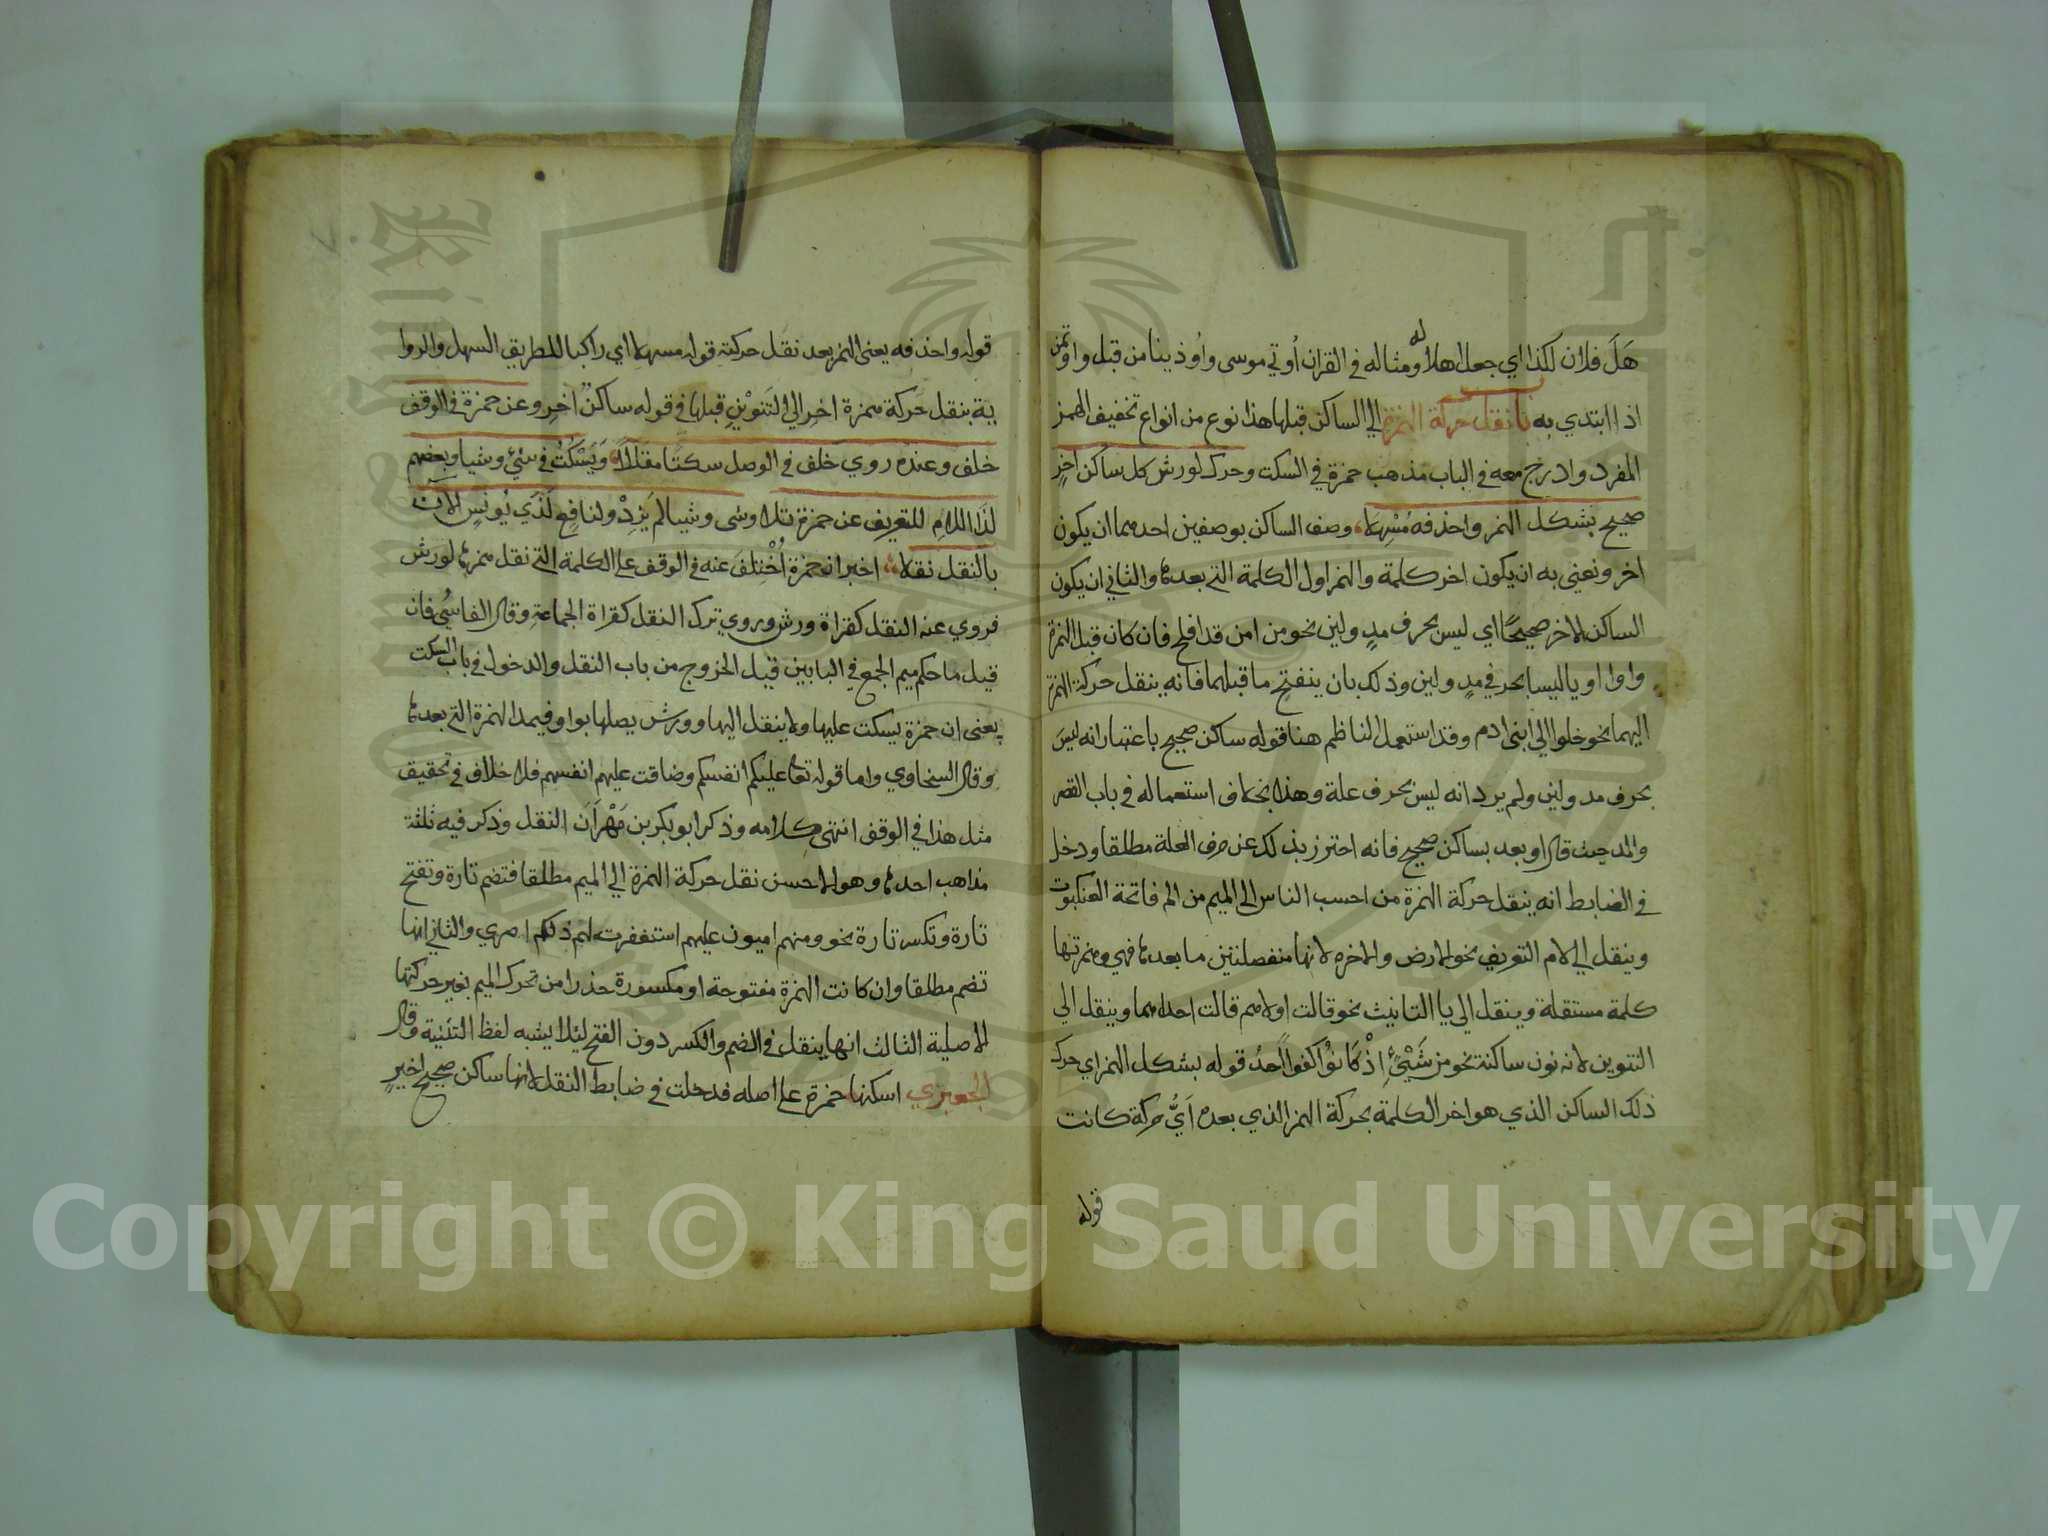 هَلَ فلان لكذا اي جعل اهلا له ومثاله في القران أوتي موسى واُوذينا من قبل واوتمن
اذا ابتدي به باب نقل حركة الهمزة الي الساكن قبلها هذا نوع من انواع تخفيف الهمز
المفرد وادرج معه في الباب مذهب حمزة في السكت وحرك لورش كل ساكن اخرٍ
صحيح بشكل الهمز واحذفه مُسْهِلا وصف الساكن بوصفين احدهما ان يكون
اخر ونعني به ان يكون اخر كلمة والهمز اول الكلمة التي بعدها والثاني ان يكون
الساكن الاخر صحيحًا اي ليس بحرف مدٍ ولين نحو من امن قد افلح فان كان قبل الهمزة
واوا او يا ليسا بحرفي مدٍ ولين وذلك بان ينفتح ما قبلهما فانه ينقل حركة الهمزة
اليهما نحو خلوا الي ابني ادم وقد استعمل الناظم هنا قوله ساكن صحيح باعتبار انه ليس
بحرف مد ولين ولم يرد انه ليس بحرف علة وهذا بخلاف استعماله في باب القصر
والمد حيث قال او بعد بساكن صحيح فانه احترز بذلك عن حرف العلة مطلقا ودخل
في الضابط انه ينقل حركة الهمزة من احسب الناس الى الميم من الم فاتحة العنكبوت
وينقل الي لام التعريف نحو الارض والاخره لانها منفصلتين ما بعدها فهي وهمزتها
كلمة مستقلة وينقل الي يا التانيث نحو قالت اولاهم قالت احداهما وينقل الي
التنوين لانه نون ساكنة نحو من شَيْئٍ اِذْ كَانُوْا كفوا احد قوله بشكل الهمز اي حرك
ذلك الساكن الذي هو اخر الكلمة بحركة الهمز الذي بعده اَيُّ حركة كانت
قوله
قوله واحذفه يعني الهمز بعد نقل حركته قوله مسهلا اي راكبا للطريق السهل والروا
ية بنقل حركة همزة اخِرِ الي التَنوِيْنِ قبلها في قوله ساكن اخِرِ وعن حمزة في الوقف
خلف وعنده روي خلف في الوصل سكتا مقللاً وَيَسْكُتُ في شيْءٍ وشيا وبعضهم
لَدَا اللامِ للتعريف عن حمزة تلا وشى وشيا لم يَزِدْ ولنافع لَدَي يُونُسٍ آلآن
بالنقل نقلا اخبر ان حمزة اُخْتِلَفَ عنه في الوقف على الكلمة التي نقل همزها لورش
فروي عنه النقل كقراة ورش وروي ترك النقل كقراة الجماعة وقال الفاسُي فان
قيل ما حكم ميم الجمع في البابين قيل الخروج من باب النقل والدخول في باب السكت
يعني ان حمزة يسكت عليها ولا ينقل اليها وورش يصلها بواو فيمدا الهمزة التي بعدها
وقال السخاوي واما قوله تعا عليكم انفسكم وضاقت عليهم انفسهم فلا خلاف في تحقيق
مثل هذا في الوقف انتهى كلامه وذكر ابو بكر بن مَهْرَاَن النقل وذكر فيه ثلثة
مذاهب احدها وهو الاحسن نقل حركة الهمزة الي الميم مطلقا فتضم تارة وتفتح
تارة وتكسر تارة نحو ومنهم اميون عليهم استغفرت لهم ذلكم اصري والثاني انها
تضم مطلقا وان كانت الهمزة مفتوحة او مكسورة حذرا من تحرك الميم بغير حركتها
الاصلية الثالث انها ينقل في الضم والكسر دون الفتح ليلا يشبه لفظ التثنية وقال
الجعبري اسكنها حمزة على اصله فدخلت في ضابط النقل لانها ساكن صحيح اخير
Copyright © King Saud University